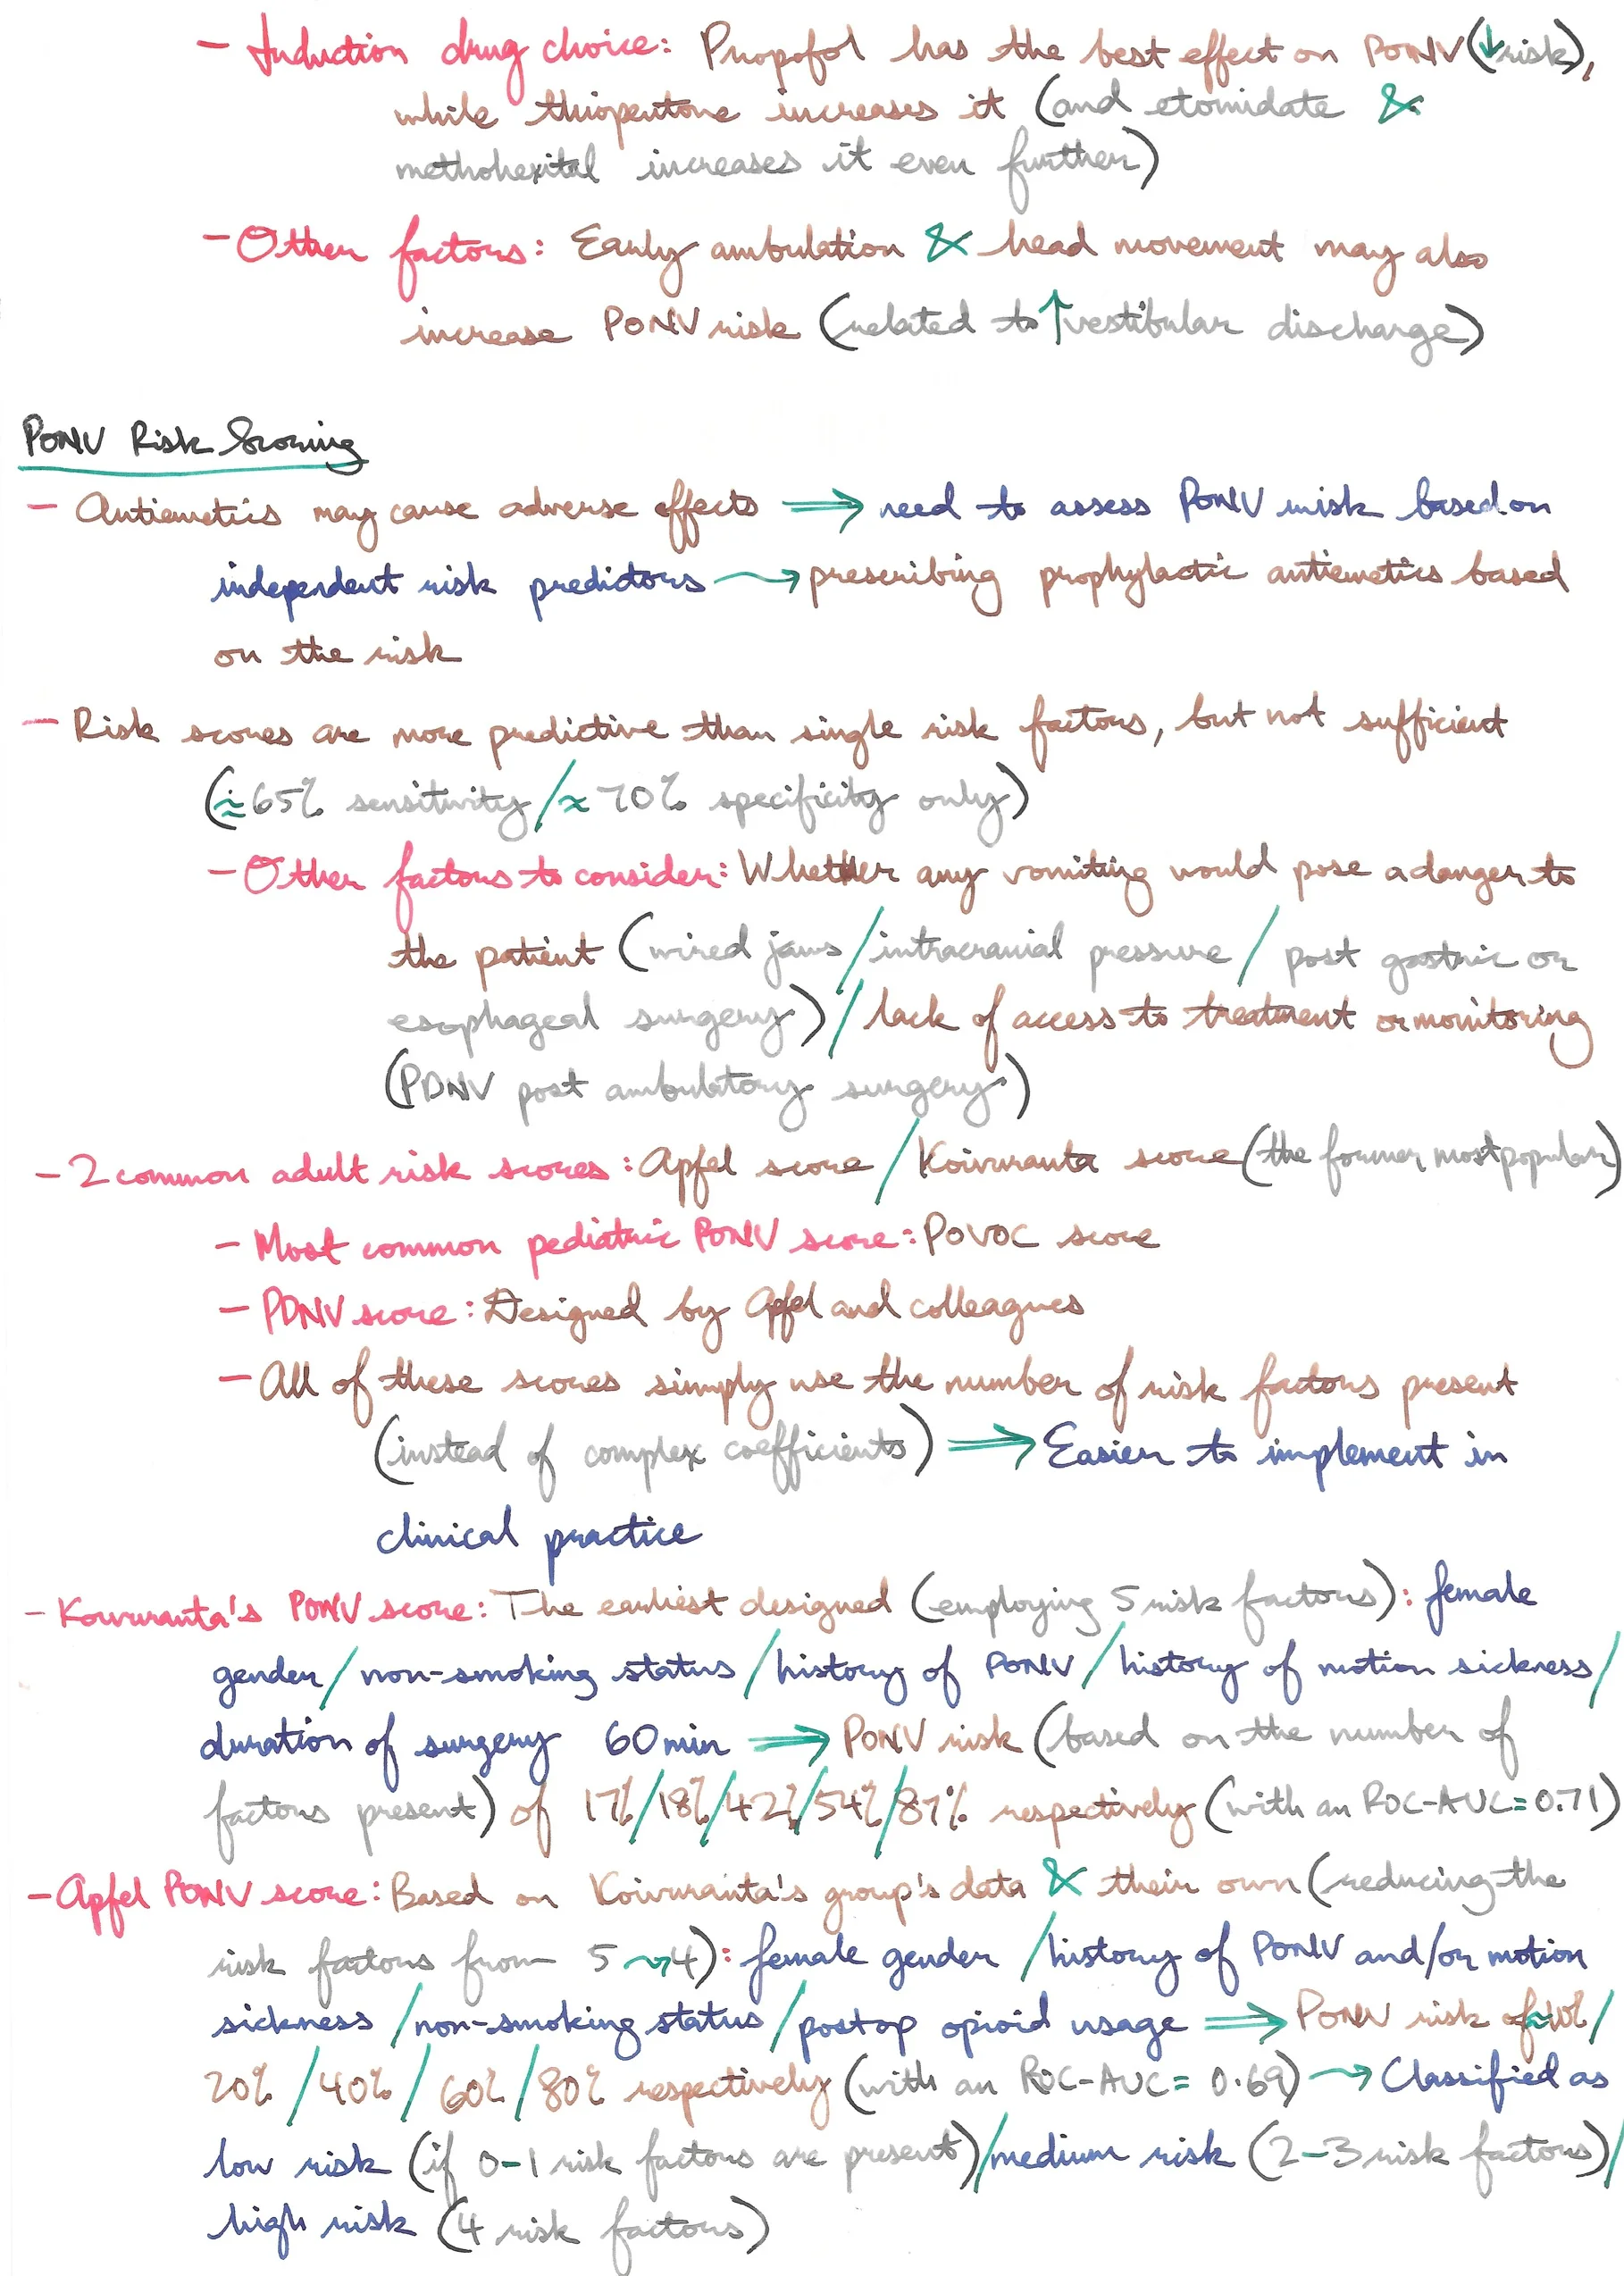 - Induction drug choice: Propofol has the best effect on PONV (↓risk),
while thiopentone increases it (and etomidate &
methohexital increases it even further)
- Other factors: Early ambulation & head movement may also
increase PONV risk (related to ↑vestibular discharge)
PONV Risk Scoring
- Antiemetics may cause adverse effects ⟹ need to assess PONV risk based on
independent risk predictors → prescribing prophylactic antiemetics based
on the risk
- Risk scores are more predictive than single risk factors, but not sufficient
(≈65% sensitivity / ≈70% specificity only)
- Other factors to consider: Whether any vomiting would pose a danger to
the patient (wired jaws / intracranial pressure / post gastric or
esophageal surgery) / lack of access to treatment or monitoring
(PDNV post ambulatory surgery)
- 2 common adult risk scores: Apfel score / Koivuranta score (the former most popular)
- Most common pediatric PONV score: POVOC score
- PDNV score: Designed by Apfel and colleagues
- All of these scores simply use the number of risk factors present
(instead of complex coefficients) ⟹ Easier to implement in
clinical practice
- Koivuranta's PONV score: The earliest designed (employing 5 risk factors): female
gender / non-smoking status / history of PONV / history of motion sickness /
duration of surgery 60 min ⟹ PONV risk (based on the number of
factors present) of 17% / 18% / 42% / 54% / 87% respectively (with an ROC-AUC = 0.71)
- Apfel PONV score: Based on Koivuranta's group's data & their own (reducing the
risk factors from 5 → 4): female gender / history of PONV and/or motion
sickness / non-smoking status / postop opioid usage ⟹ PONV risk of ≈10% /
20% / 40% / 60% / 80% respectively (with an ROC-AUC = 0.69) → Classified as
low risk (if 0-1 risk factors are present) / medium risk (2-3 risk factors) /
high risk (4 risk factors)